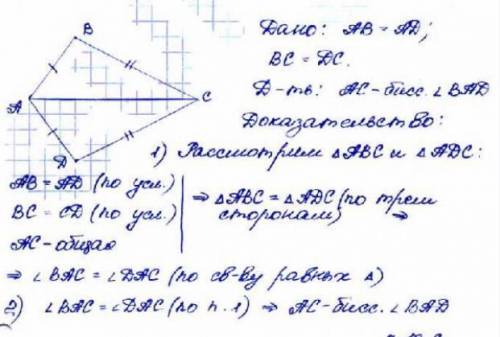 B
A
C
D
Дано: AB = AD;
BC = DC.
Д-ть: AC - бисс. ∠BAD
Доказательство:
1) Рассмотрим △ABC и △ADC:
AB = AD (по усл.)
BC = CD (по усл.)
AC - общая
⇒ △ABC = △ADC (по трем
сторонам) ⇒
⇒ ∠BAC = ∠DAC (по св-ву равных △)
2) ∠BAC = ∠DAC (по п. 1) ⇒ AC - бисс. ∠BAD